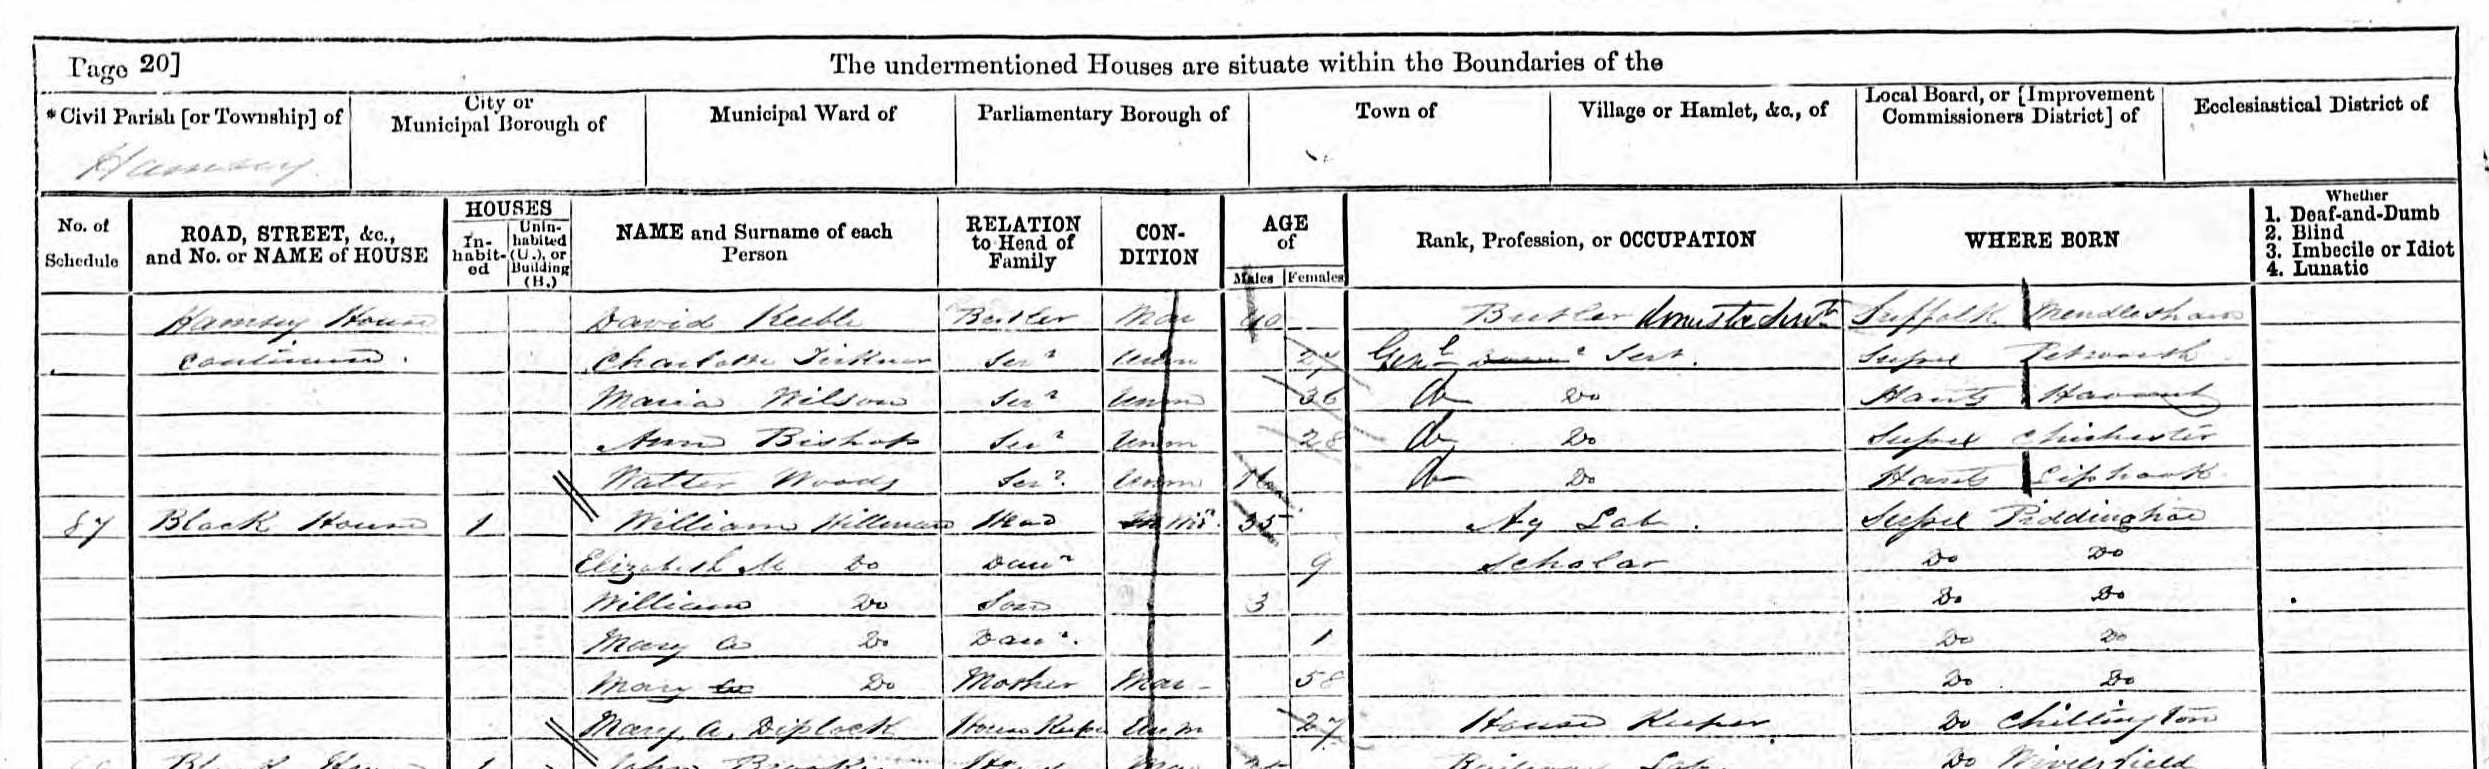 Page 20]
The undermentioned Houses are situate within the Boundaries of the
*Civil Parish [or Township] of
City or Municipal Borough of
Municipal Ward of
Parliamentary Borough of
Town of
Village or Hamlet, &c., of
Local Board, or [Improvement Commissioners District] of
Ecclesiastical District of
Hamsey
No. of Schedule
ROAD, STREET, &c., and No. or NAME of HOUSE
HOUSES
In-habit-ed
Unin-habited (U.), or Building (B.)
NAME and Surname of each Person
RELATION to Head of Family
CON-DITION
AGE of
Males
Females
Rank, Profession, or OCCUPATION
WHERE BORN
Whether
1. Deaf-and-Dumb
2. Blind
3. Imbecile or Idiot
4. Lunatic
Hamsey House David Keeble Butler Mar 40 Butler Domestic Servt Suffolk Mendlesham
Continued. Charlotte Serv Unm Genl Servt. Sussex Petworth
Maria Wilson Serv Unm 36 Do Do Hants Havant
Ann Bishop Serv Unm 28 Do Do Sussex Chichester
Walter Woods Serv. Unm 16 Do Do Hants Liphook
87 Black House 1 William Hillman Head Wid. 35 Ag Lab. Sussex Piddinghoe
Elizabeth M Do Daur 9 Scholar Do Do
William Do Son 3 Do Do
Mary A Do Daur. 1 Do Do
Mary Do Mother Mar 58 Do Do
Mary A. Diplock House Keeper Unm 27 House Keeper Do Chiltington
1 John Head Mar Railway Lab Do Wivelsfield